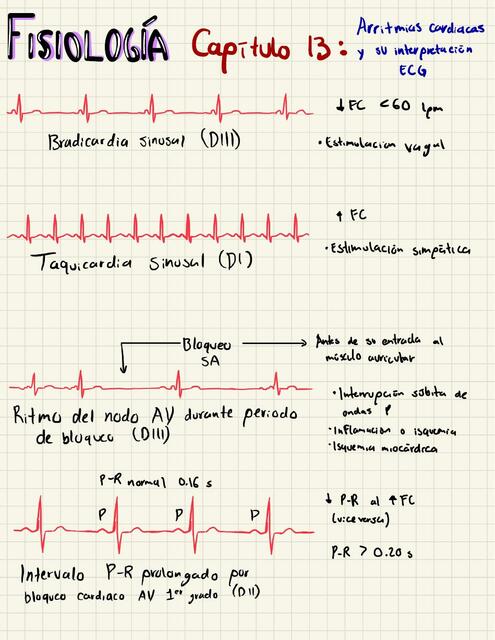 FISIOLOGÍA Capítulo 13:
Arritmias cardiacas
y su interpretación
ECG
↓ FC <60 lpm
Bradicardia sinusal (DIII)
• Estimulacion vagal
↑ FC
• Estimulación simpática
Taquicardia sinusal (DI)
Bloqueo
SA
Antes de su entrada al
músculo auricular
Ritmo del nodo AV durante periodo
de bloqueo (DIII)
• Interrupción súbita de
ondas P
• Inflamacion o isquemia
• Isquemia miocárdica
P-R normal 0.16 s
P P P
↓ P-R al ↑ FC
(viceversa)
P-R > 0.20 s
Intervalo P-R prolongado por
bloqueo cardiaco AV 1er grado (DII)